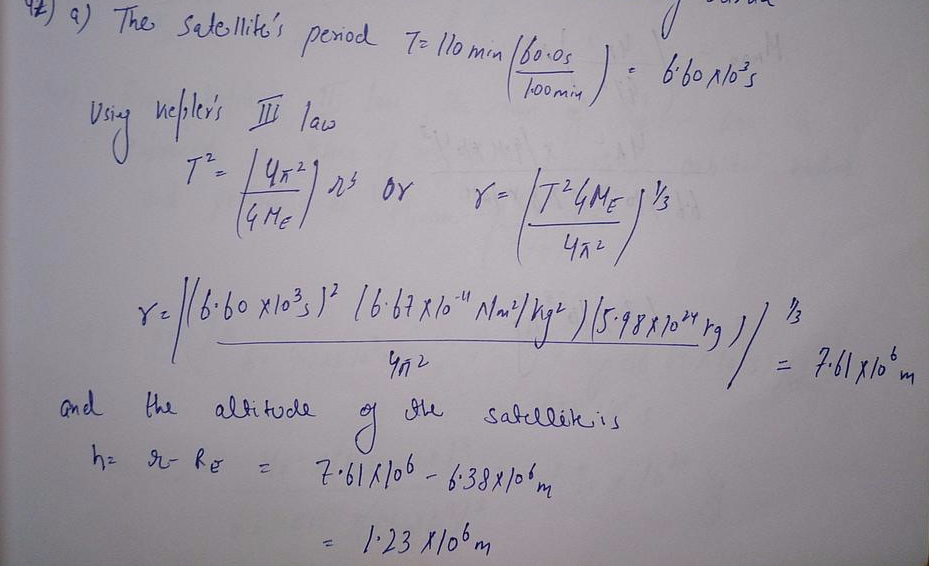 42) a) The Satellite's period T= 110 min (60.0s / 1.00min) = 6.60 x10³s
Using Kepler's III law
T² = (4π² / GM_E) r³ or r = (T² GM_E / 4π²)^1/3
r = ((6.60 x10³s)² (6.67 x 10⁻¹¹ Nm²/kg²) (5.98 x 10²⁴ kg) / 4π²)^1/3 = 7.61 x10⁶ m
and the altitude of the satellite is
h= r- R_E = 7.61 x 10⁶ - 6.38 x 10⁶ m
= 1.23 x10⁶ m